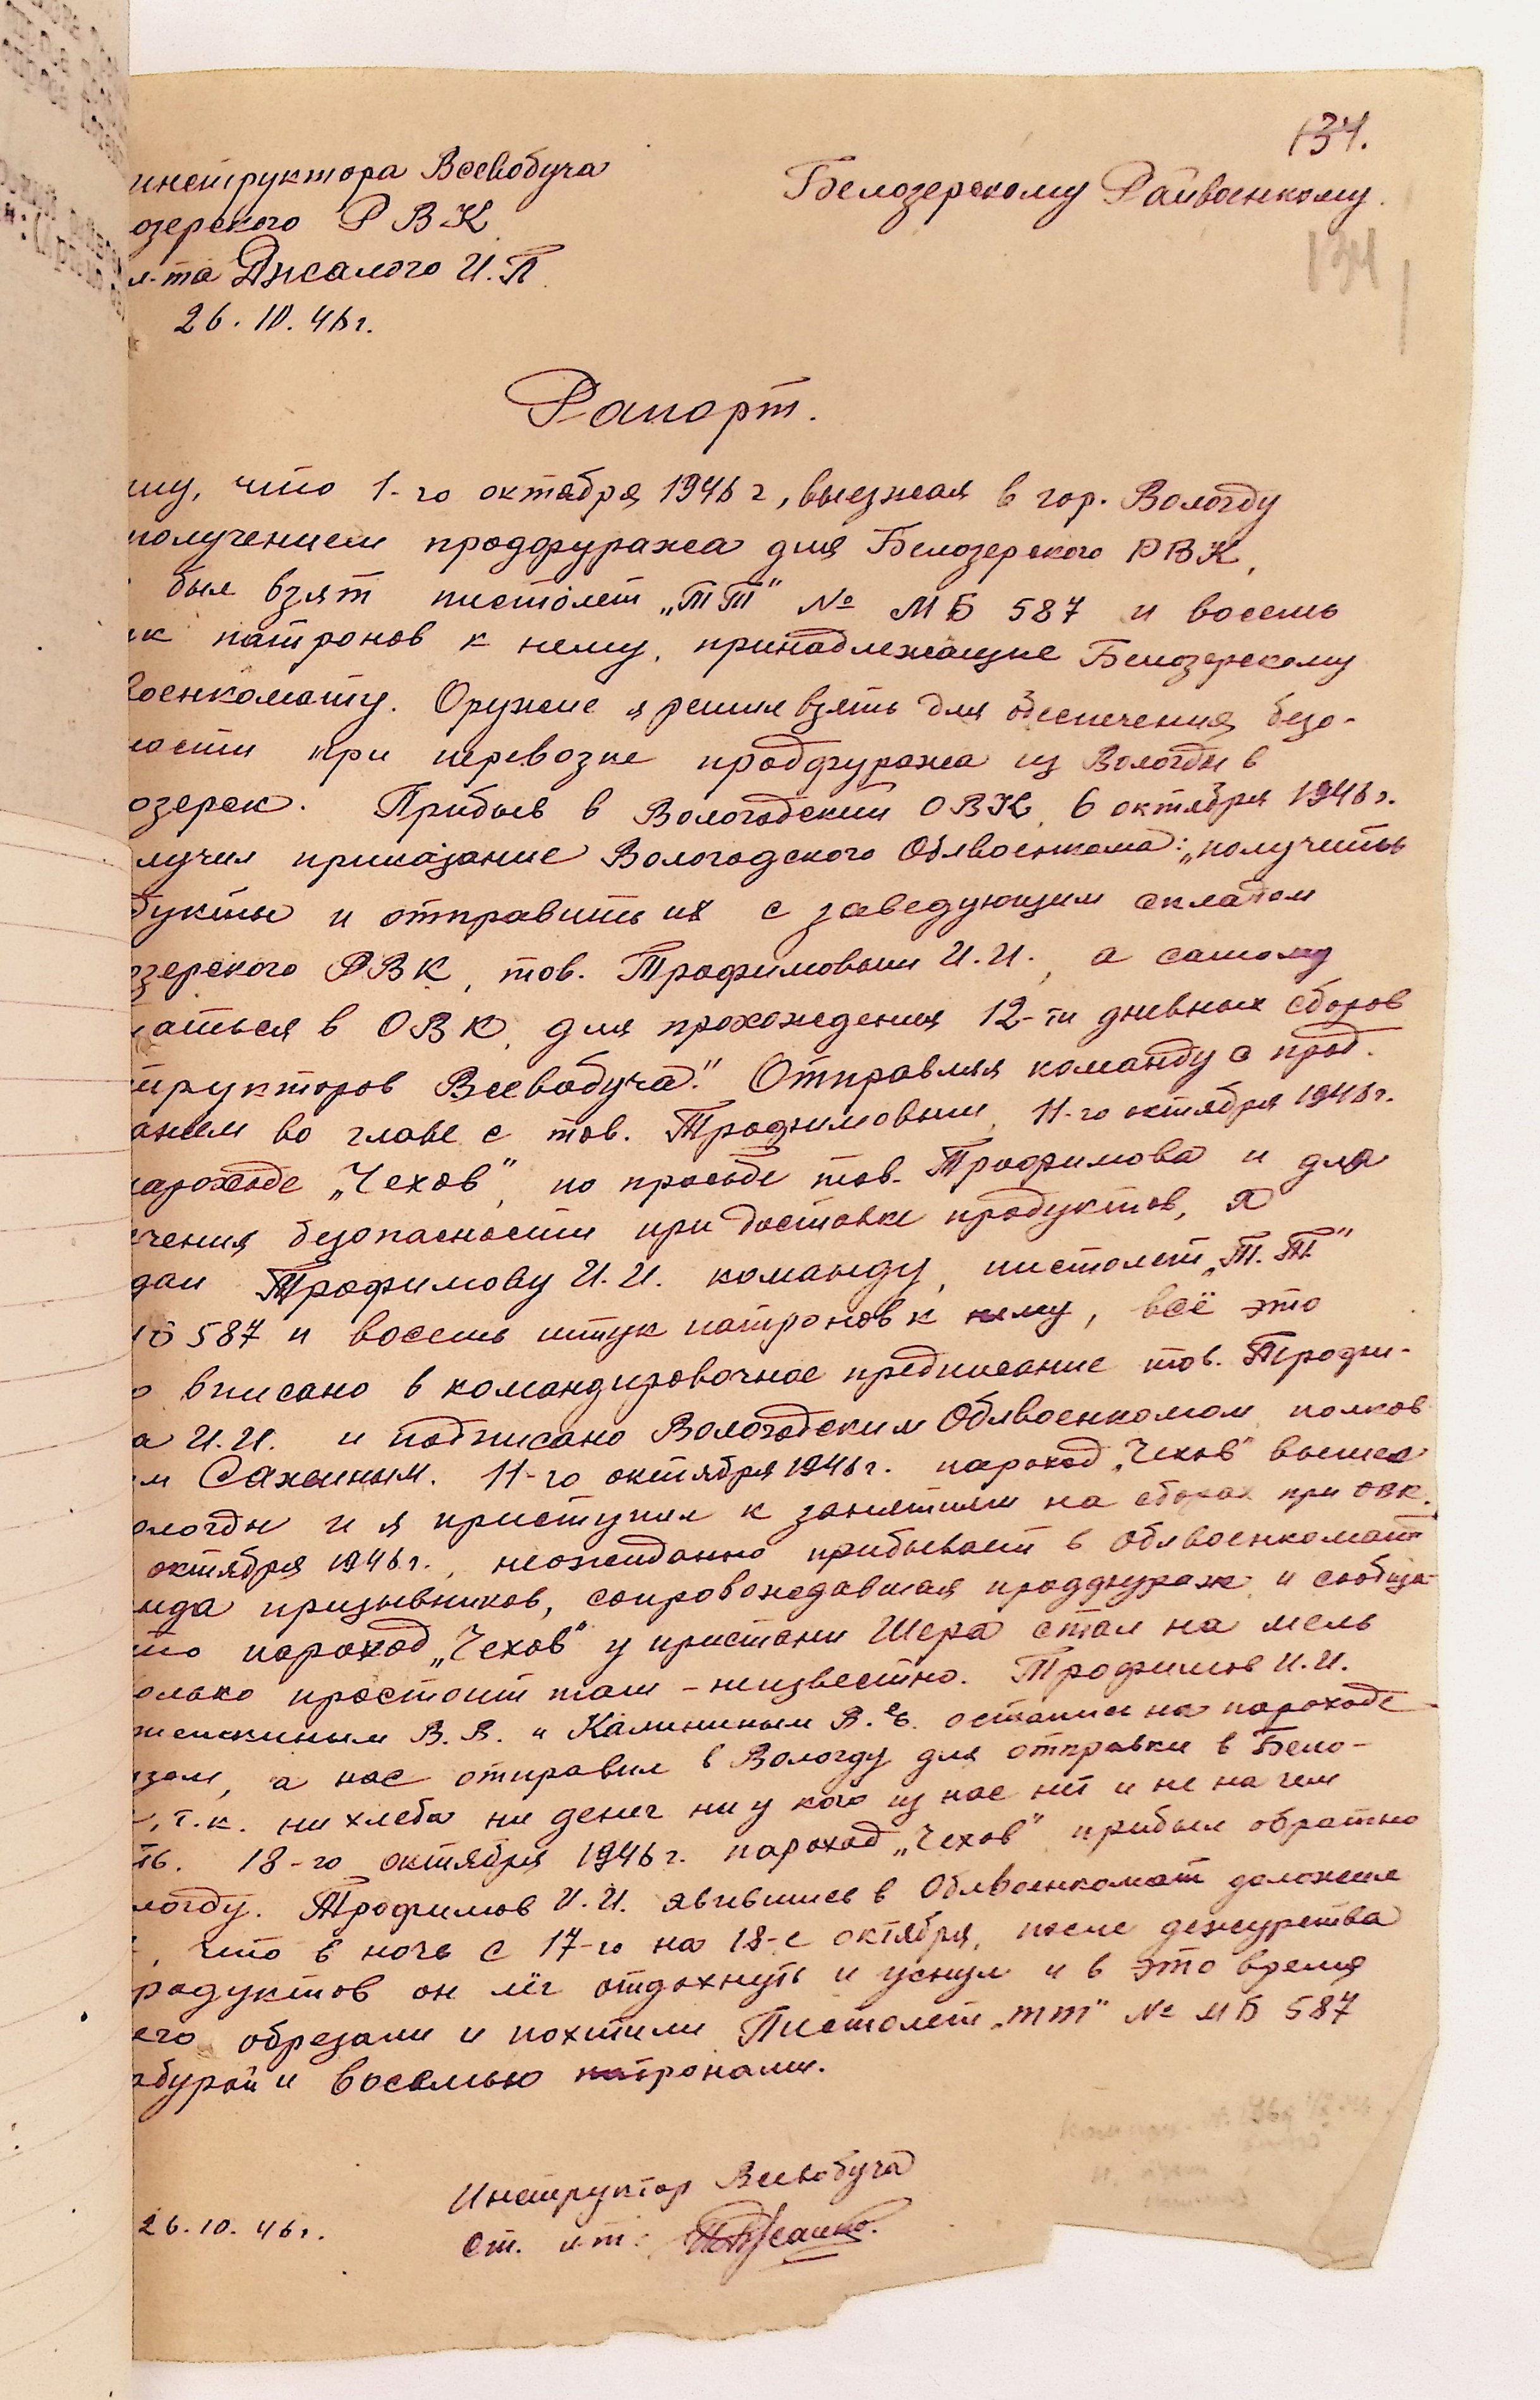 134.
инструктора Всевобуча
Белозерскому Райвоенкому.
озерского РВК
134
л-та Джалого И.П.
26.10.46г.
Рапорт.
шу, что 1-го октября 1946 г, выезжая в гор. Вологду
получением продфуража для Белозерского РВК,
был взят пистолет „ТТ" № МБ 587 и восемь
ук патронов к нему, принадлежащие Белозерскому
военкомату. Оружие я решил взять для обеспечения безо-
ности при перевозке продфуража из Вологды в
озерск. Прибыв в Вологодский ОВК, 6 октября 1946 г.
лучил приказание Вологодского Облвоенкома: „получить
дукты и отправить их с заведующим складом
озерского РВК, тов. Трофимовым И.И., а самому
аться в ОВК, для прохождения 12-ти дневных сборов
трукторов Всевобуча." Отправляя команду с прод.
анием во главе с тов. Трофимовым, 11-го октября 1946г.
пароходе „Чехов", по просьбе тов. Трофимова и для
ечения безопасности при доставке продуктов, я
дал Трофимову И.И. команду, пистолет „Т.Т"
Б 587 и восемь штук патронов к нему, всё это
о вписано в командировочное предписание тов. Трофи-
а И.И. и подписано Вологодским Облвоенкомом полков
м 11-го октября 1946г. пароход „Чехов" вышел
ологды и я приступил к занятиям на сборах при ОВК.
октября 1946г., неожиданно прибывает в Облвоенкомат
нда призывников, сопровождавшая продфураж и сообща-
то пароход „Чехов" у пристани Шера стал на мель
олько простоит там - неизвестно. Трофимов И.И.
В.В. и Калининым В.Е. остались на пароходе
зом, а нас отправил в Вологду для отправки в Бело-
, т.к. ни хлеба ни денег ни у кого из нас нет и не на чем
ть. 18-го октября 1946г. пароход „Чехов" прибыл обратно
логду. Трофимов И.И. явившись в Облвоенкомат доложил
, что в ночь с 17-го на 18-е октября, после дежурства
родуктов он лёг отдохнуть и уснул и в это время
его обрезали и похитили Пистолет „ТТ" № МБ 587
обурой и восемью патронами.
Инструктор Всевобуча
26.10.46г.
Ст. л-т: